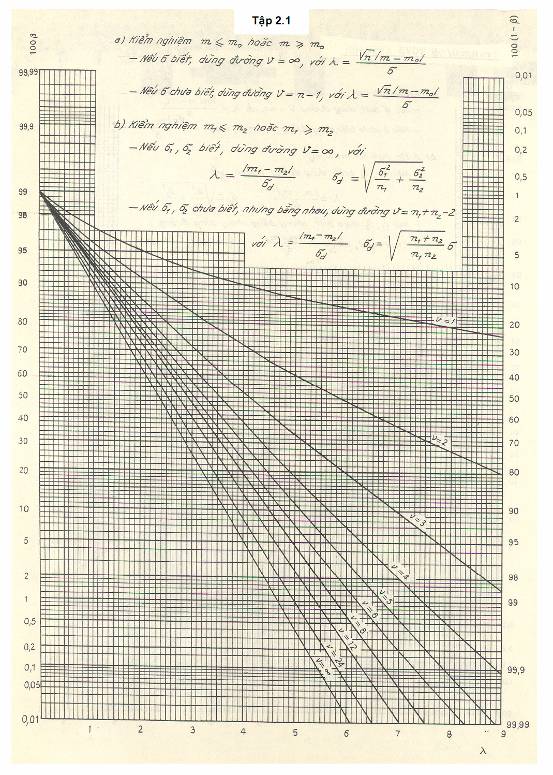 Tập 2.1
a) Kiểm nghiệm m ⩽ m₀ hoặc m ⩾ m₀
— Nếu σ biết, dùng đường ν = ∞, với λ = √n |m − m₀| / σ
— Nếu σ chưa biết, dùng đường ν = n − 1, với λ = √n |m − m₀| / σ
b) Kiểm nghiệm m₁ ⩽ m₂ hoặc m₁ ⩾ m₂
— Nếu σ₁, σ₂ biết, dùng đường ν = ∞, với
λ = |m₁ − m₂| / σd σd = √(σ₁²/n₁ + σ₂²/n₂)
— Nếu σ₁, σ₂ chưa biết, nhưng bằng nhau, dùng đường ν = n₁ + n₂ − 2
với λ = |m₁ − m₂| / σd σd = √((n₁ + n₂) / n₁n₂) σ
100 β
99,99
99,9
99
98
95
90
80
70
60
50
40
30
20
10
5
2
1
0,5
0,2
0,1
0,05
0,01
100 (1 − β)
0,01
0,05
0,1
0,2
0,5
1
2
5
10
20
30
40
50
60
70
80
90
95
98
99
99,9
99,99
ν = 1
ν = 2
ν = 3
ν = 4
ν = 5
ν = 6
ν = 8
ν = 12
ν = 24
ν = ∞
1 2 3 4 5 6 7 8 9
λ